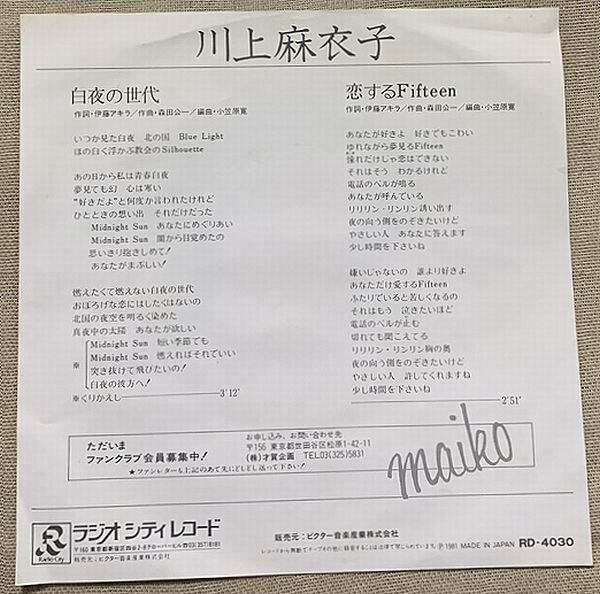 川上麻衣子
白夜の世代
作詞・伊藤アキラ／作曲・森田公一／編曲・小笠原寛
いつか見た白夜 北の国 Blue Light
ほの白く浮かぶ教会のSilhouette
あの日から私は青春白夜
夢見ても幻 心は寒い
“好きだよ”と何度か言われたけれど
ひとときの想い出 それだけだった
Midnight Sun あなたにめぐりあい
Midnight Sun 闇から目覚めたの
思いきり抱きしめて！
あなたがまぶしい！
燃えたくて燃えない白夜の世代
おぼろげな恋にはしたくはないの
北国の夜空を明るく染めた
真夜中の太陽 あなたが欲しい
Midnight Sun 短い季節でも
※ Midnight Sun 燃えればそれでいい
突き抜けて飛びたいの！
白夜の彼方へ！
※くりかえし 3'12"
恋するFifteen
作詞・伊藤アキラ／作曲・森田公一／編曲・小笠原寛
あなたが好きよ 好きでもこわい
ゆれながら夢見るFifteen
憧れだけじゃ恋はできない
それはそう わかるけれど
電話のベルが鳴る
あなたが呼んでいる
リリリン・リンリン誘い出す
夜の向う側をのぞきたいけど
やさしい人 あなたに答えます
少し時間を下さいね
嫌いじゃないの 誰より好きよ
あなただけ愛するFifteen
ふたりでいると苦しくなるの
それはもう 泣きたいほど
電話のベルが止む
切れても聞こえてる
リリリン・リンリン胸の奥
夜の向う側をのぞきたいけど
やさしい人 許してくれますね
少し時間を下さいね
2'51"
ただいま
ファンクラブ会員募集中！
お申し込み、お問い合わせ先
〒156 東京都世田谷区松原1-42-11
(株)才賀企画 TEL03(325)5831
★ファンレターも上記のあて先にどしどし送って下さい！
maiko
Radio City
ラジオシティレコード
〒160 東京都新宿区四谷
販売元／ビクター音楽産業株式会社
販売元：ビクター音楽産業株式会社
レコードから無断でテープその他に録音することは法律で禁じられています。 Ⓟ1981 MADE IN JAPAN RD-4030